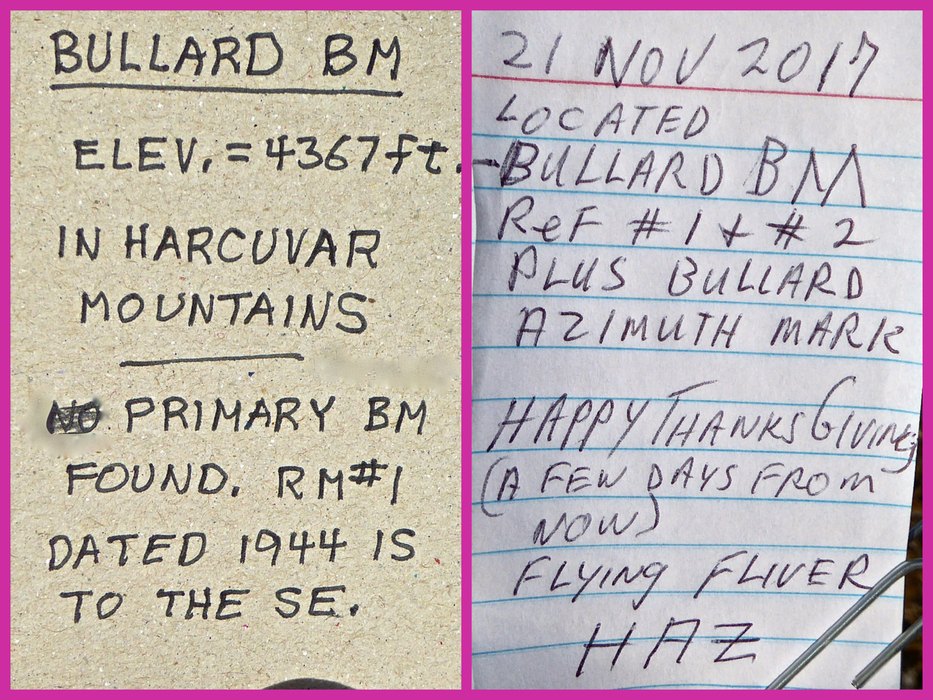 BULLARD BM
ELEV. = 4367 ft.
IN HARCUVAR
MOUNTAINS
PRIMARY BM
FOUND. RM#1
DATED 1944 IS
TO THE SE.
21 NOV 2017
LOCATED
-BULLARD BM
ReF # 1 + # 2
PLUS BULLARD
AZIMUTH MARK
HAPPY THANKSGIVING
(A FEW DAYS FROM
NOW)
FLYING FLIVER
HAZ